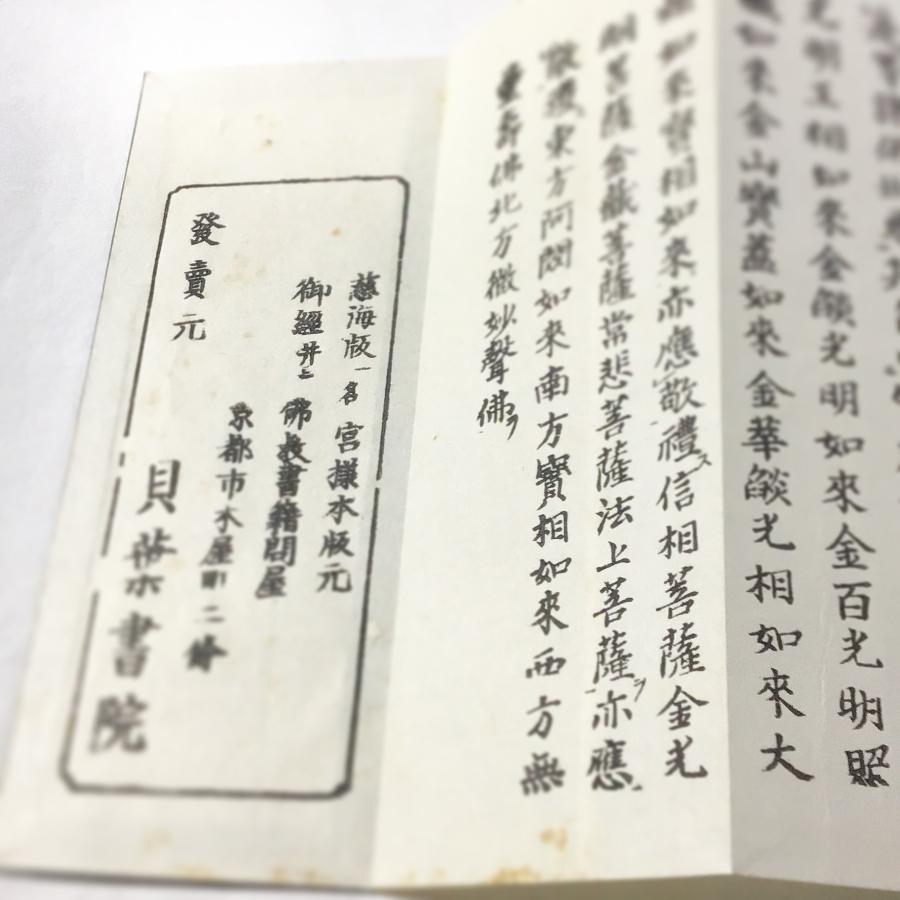 光明王相如來金焰光明如來金百光明照
如來金山寶蓋如來金華焰光相如來大
如來寶相如來亦應敬禮ス信相菩薩金光
明菩薩金藏菩薩常悲菩薩法上菩薩亦應
敬禮東方阿閦如來南方寶相如來西方無
量壽佛北方微妙聲佛ヲ
慈海版一名宮樣本版元
御經并ニ佛教書籍問屋
京都市木屋町二條
發賣元 貝葉書院